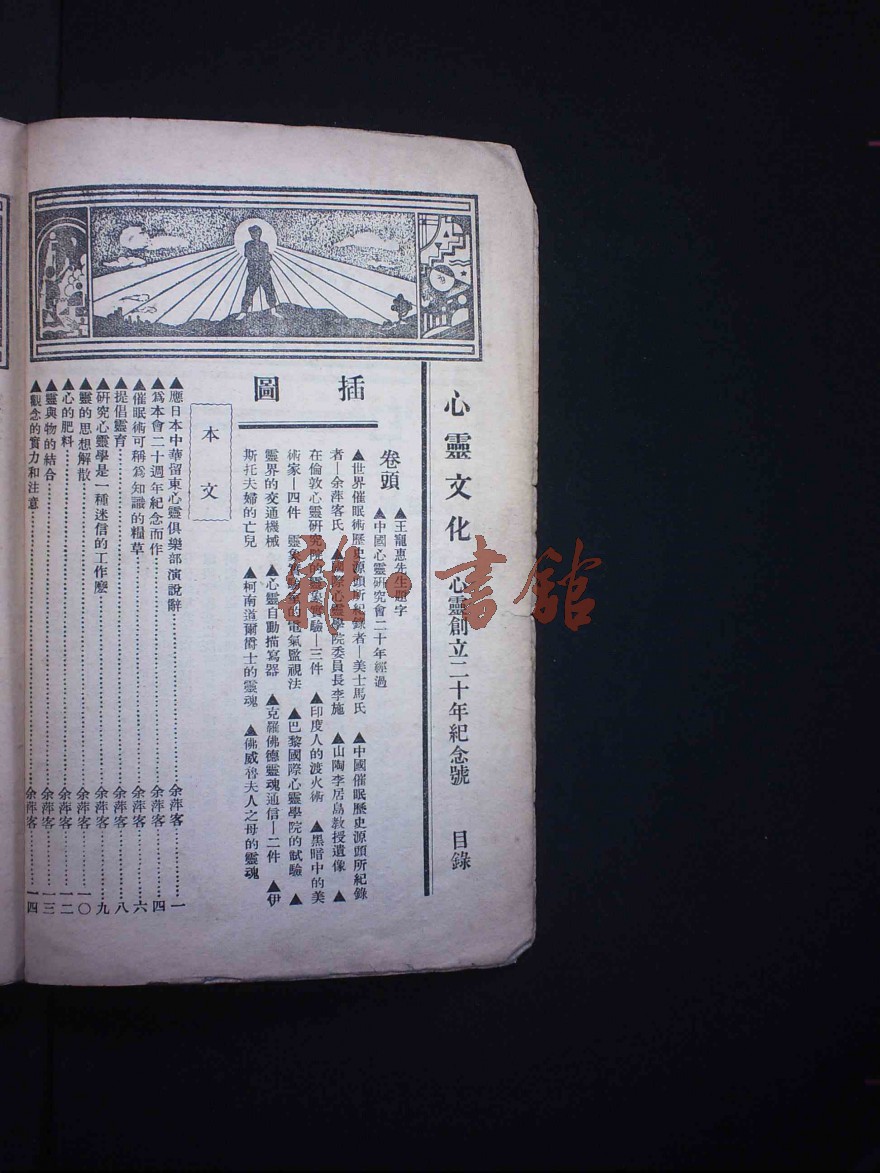 心靈文化 心靈創立二十年紀念號 目錄
卷頭
▲王寵惠先生題字
▲中國心靈研究會二十年經過
插圖
▲世界催眠術歷史源頭所紀錄者—美士馬氏 ▲中國催眠歷史源頭所紀錄
者—余萍客氏 ▲國際心靈學院委員長李施 ▲山陶李居島教授遺像 ▲
在倫敦心靈研究院的靈象實驗—三件 ▲印度人的渡火術 ▲黑暗中的美
術家—四件 靈象實驗室的電氣監視法 ▲巴黎國際心靈學院的試驗 ▲
靈界的交通機械 ▲心靈自動描寫器 ▲克羅佛德靈魂通信—二件 ▲伊
斯托夫婦的亡兒 ▲柯南道爾爵士的靈魂 ▲佛威魯夫人之母的靈魂
本文
▲應日本中華留東心靈俱樂部演說辭…………余萍客……一
▲爲本會二十週年紀念而作…………余萍客……四
▲催眠術可稱爲知識的糧草…………余萍客……六
▲提倡靈育…………余萍客……八
▲研究心靈學是一種迷信的工作麼…………余萍客……九
▲靈的思想解散…………余萍客……一〇
▲心的肥料…………余萍客……一二
▲靈與物的結合…………余萍客……一三
▲觀念的實力和注意…………余萍客……一四
雅·書館